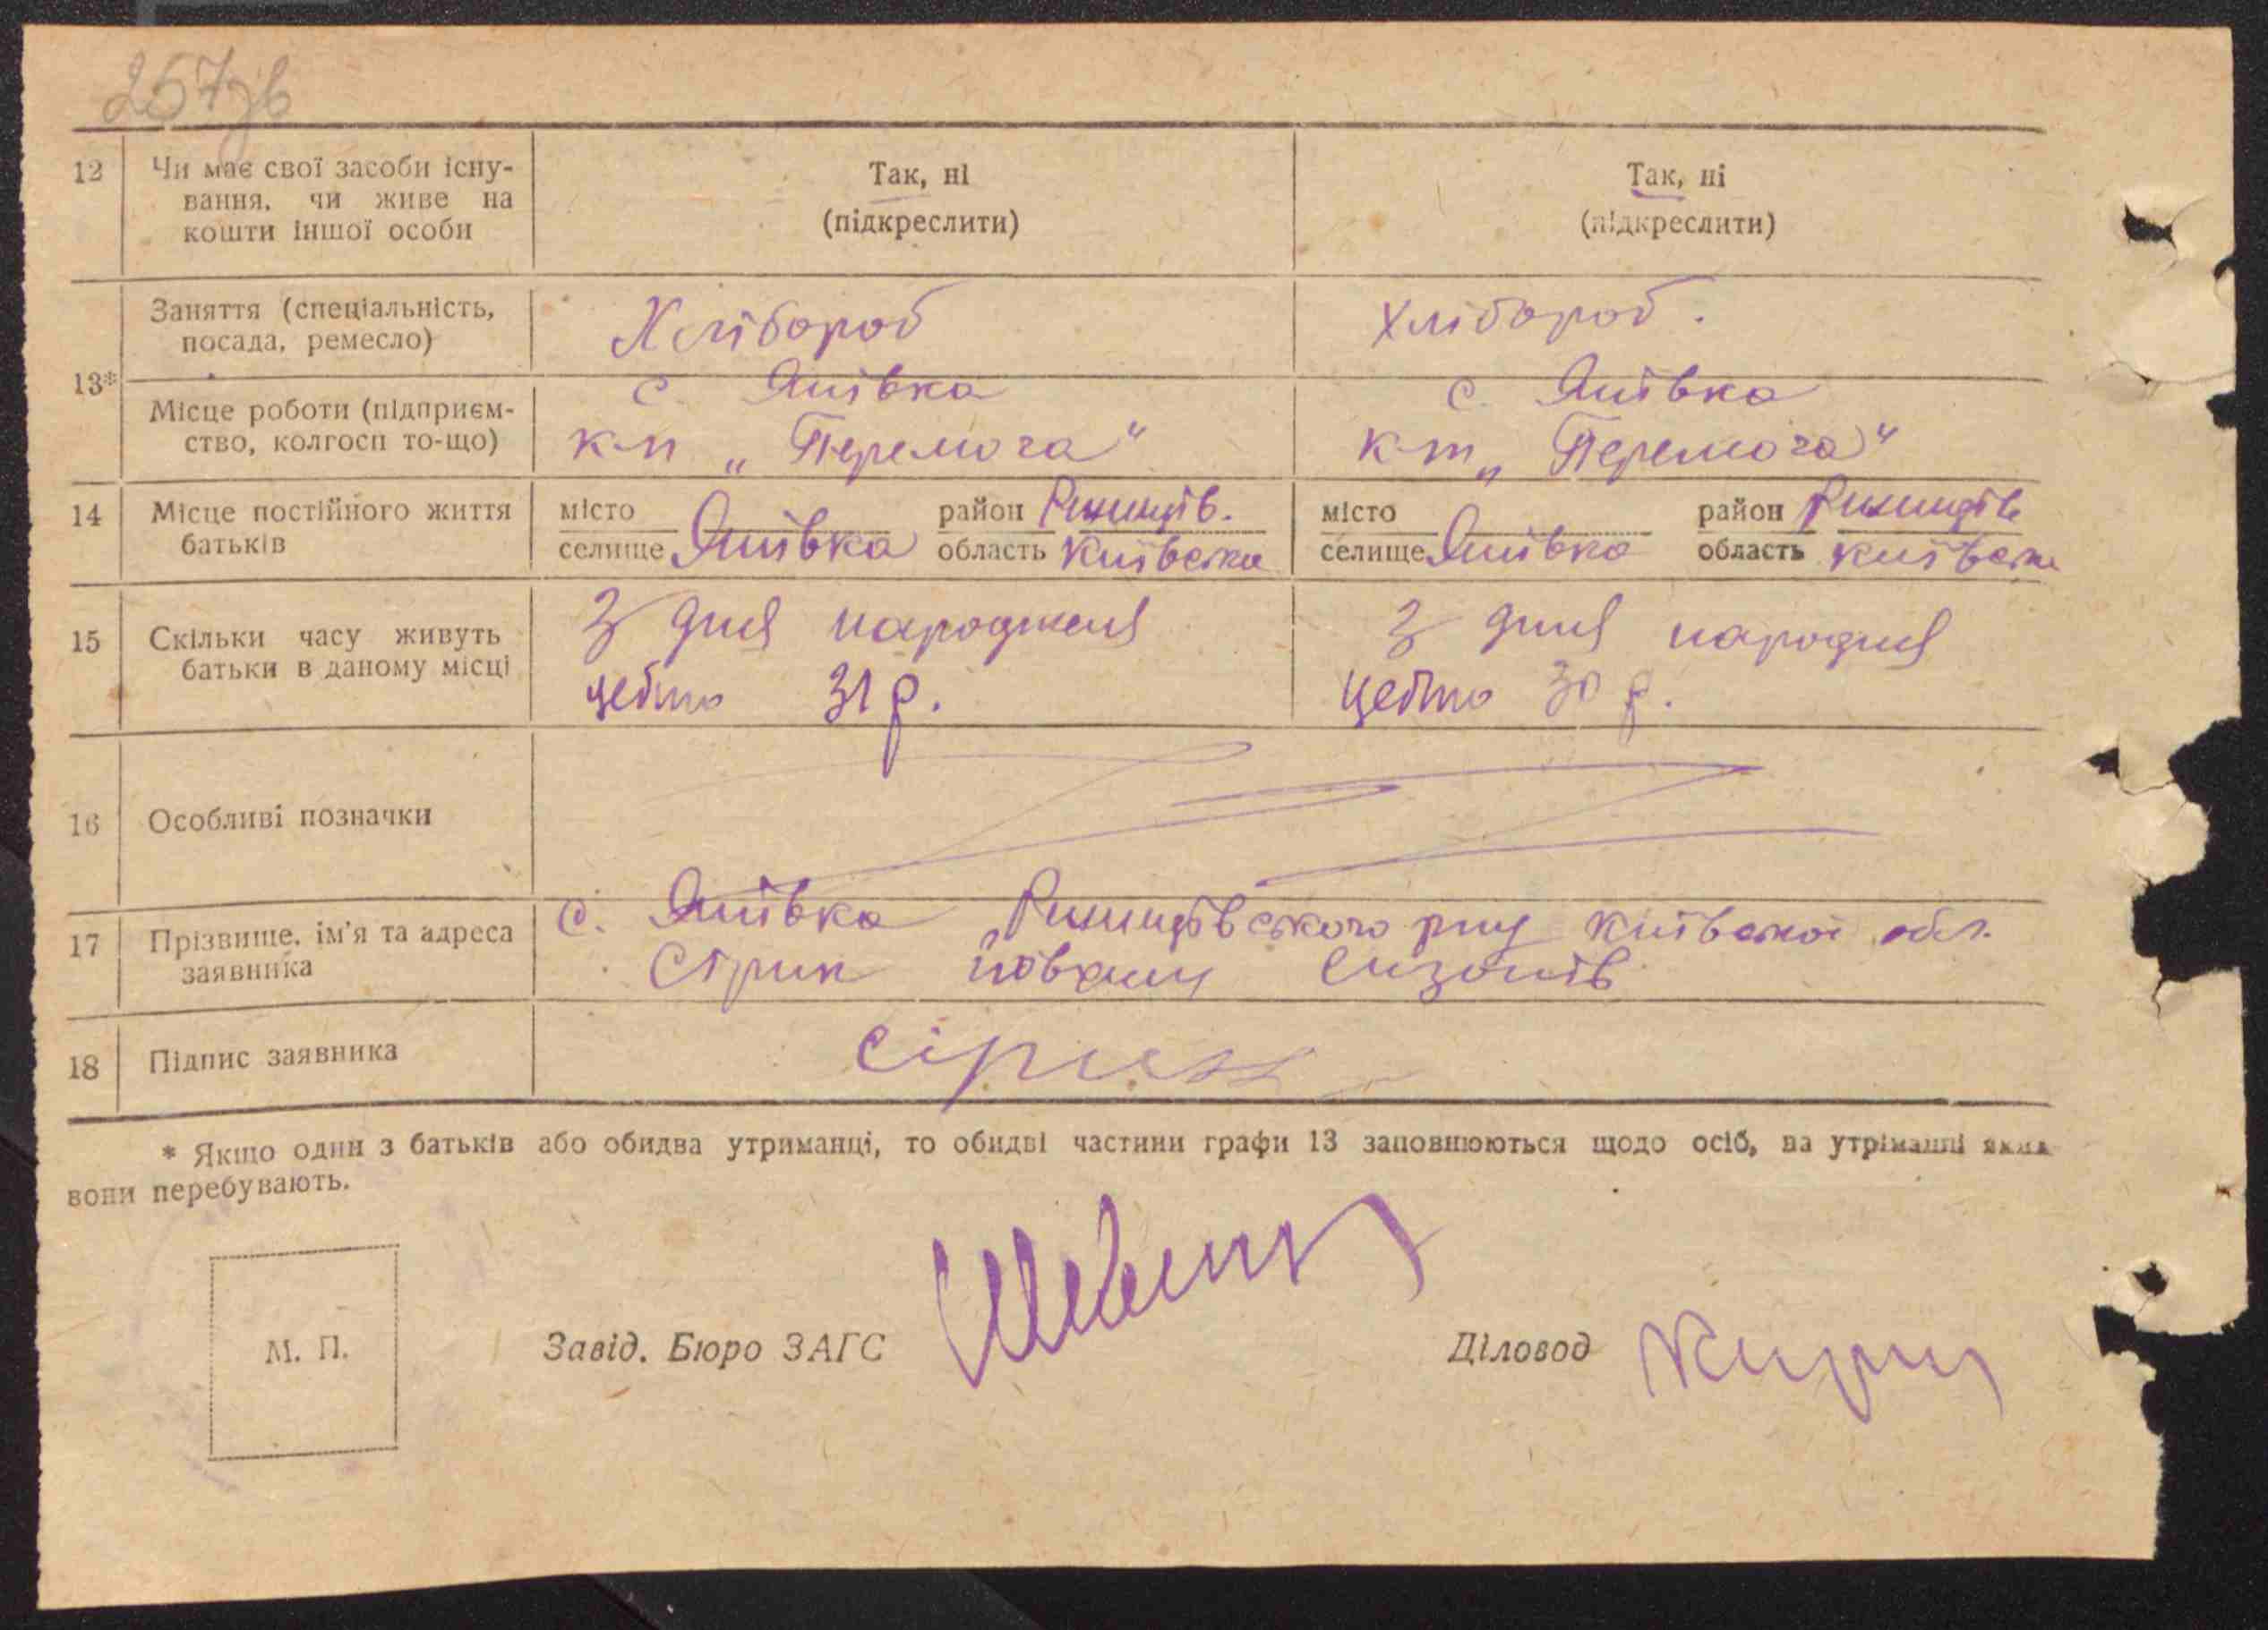 257зв
12 Чи має свої засоби існу- Так, ні Так, ні
вання, чи живе на (підкреслити) (підкреслити)
кошти іншої особи
13*
Заняття (спеціальність, Хлібороб хлібороб.
посада, ремесло)
с. Яшівка с. Яшівка
Місце роботи (підприєм- „Перемога“ „Перемога“
ство, колгосп то-що)
14 Місце постійного життя місто район Ржищів. місто район Ржищів
батьків селище Яшівка область Київська селище Яшівка область Київська
15 Скільки часу живуть З дня З дня
батьки в даному місці цебто 31 р. цебто 30 р.
16 Особливі позначки
с. Яшівка Ржищівського р-ну Київської обл.
17 Прізвище, ім'я та адреса
заявника
18 Підпис заявника
* Якщо один з батьків або обидва утриманці, то обидві частини графи 13 заповнюються щодо осіб, на утріманні яких
вони перебувають.
М. П. Завід. Бюро ЗАГС Діловод